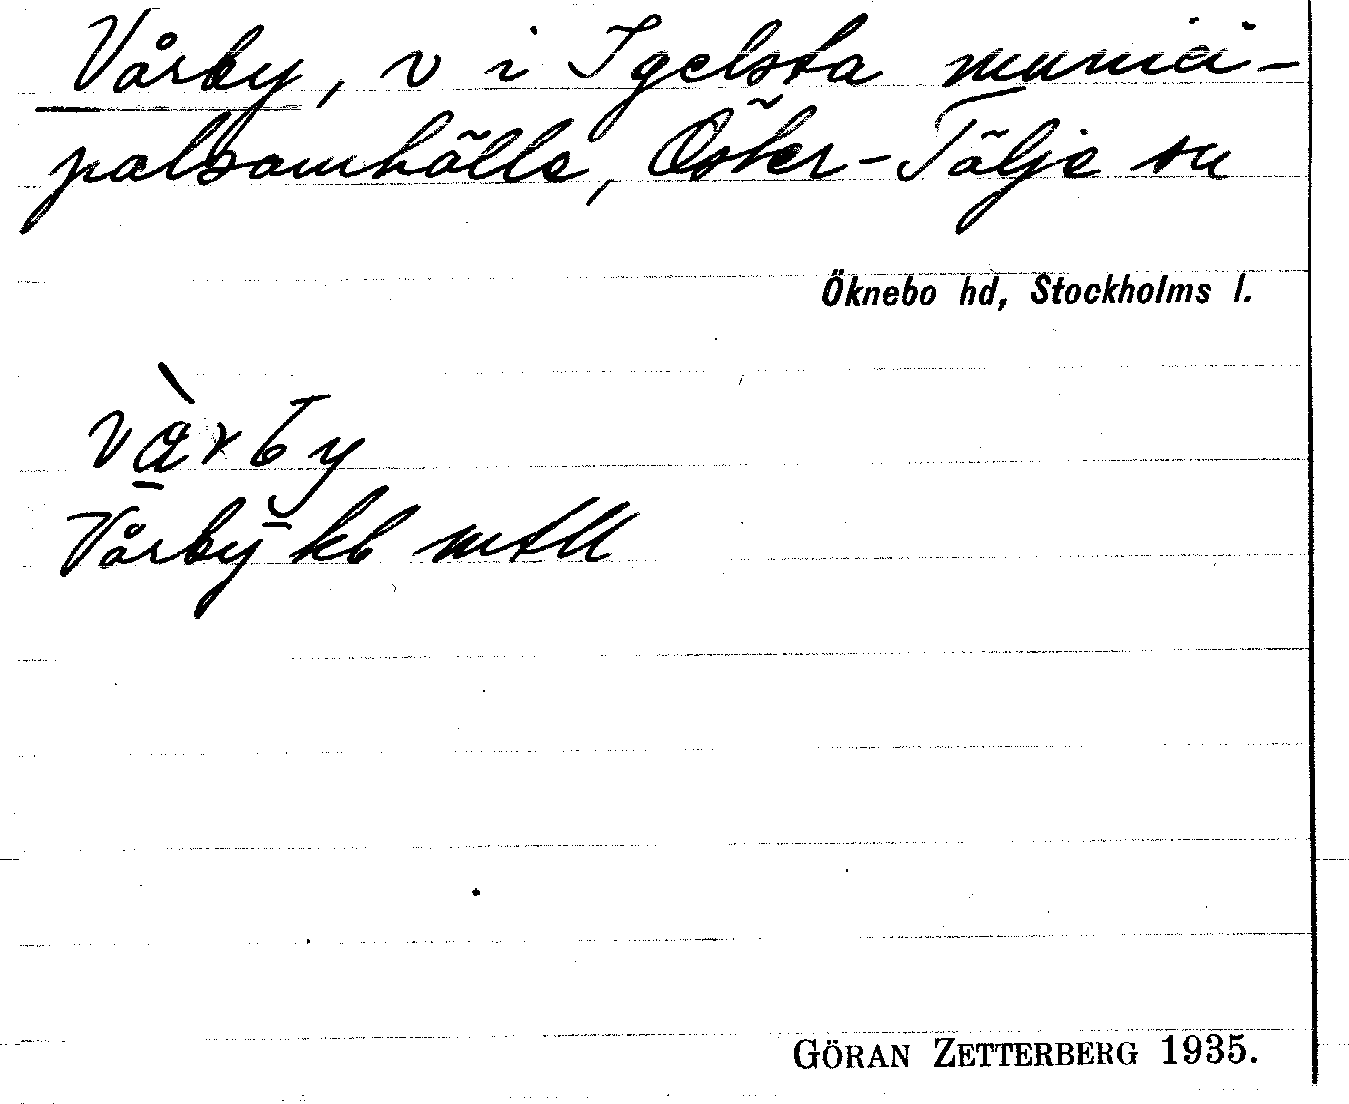 Vårby, v i Igelsta munici-
palsamhälle, Öster-Tälje sn
Öknebo hd, Stockholms l.
Vårby kb mtll
GÖRAN ZETTERBERG 1935.